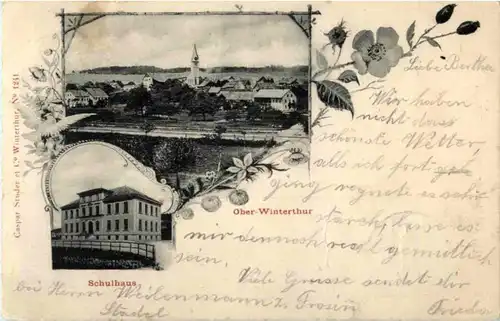 Caspar Studer et Cie Winterthur, No 1241
Liebe Bertha
Wir haben
nicht das
schönste Wetter
als ich fort-
ging regnete es schön
Ober-Winterthur
mir dennoch recht gemüttlich
sein.
Viele Grüsse sendet dir
Schulhaus
bei Herrn Weilenmann z. Frosin
Stadel
Frieda